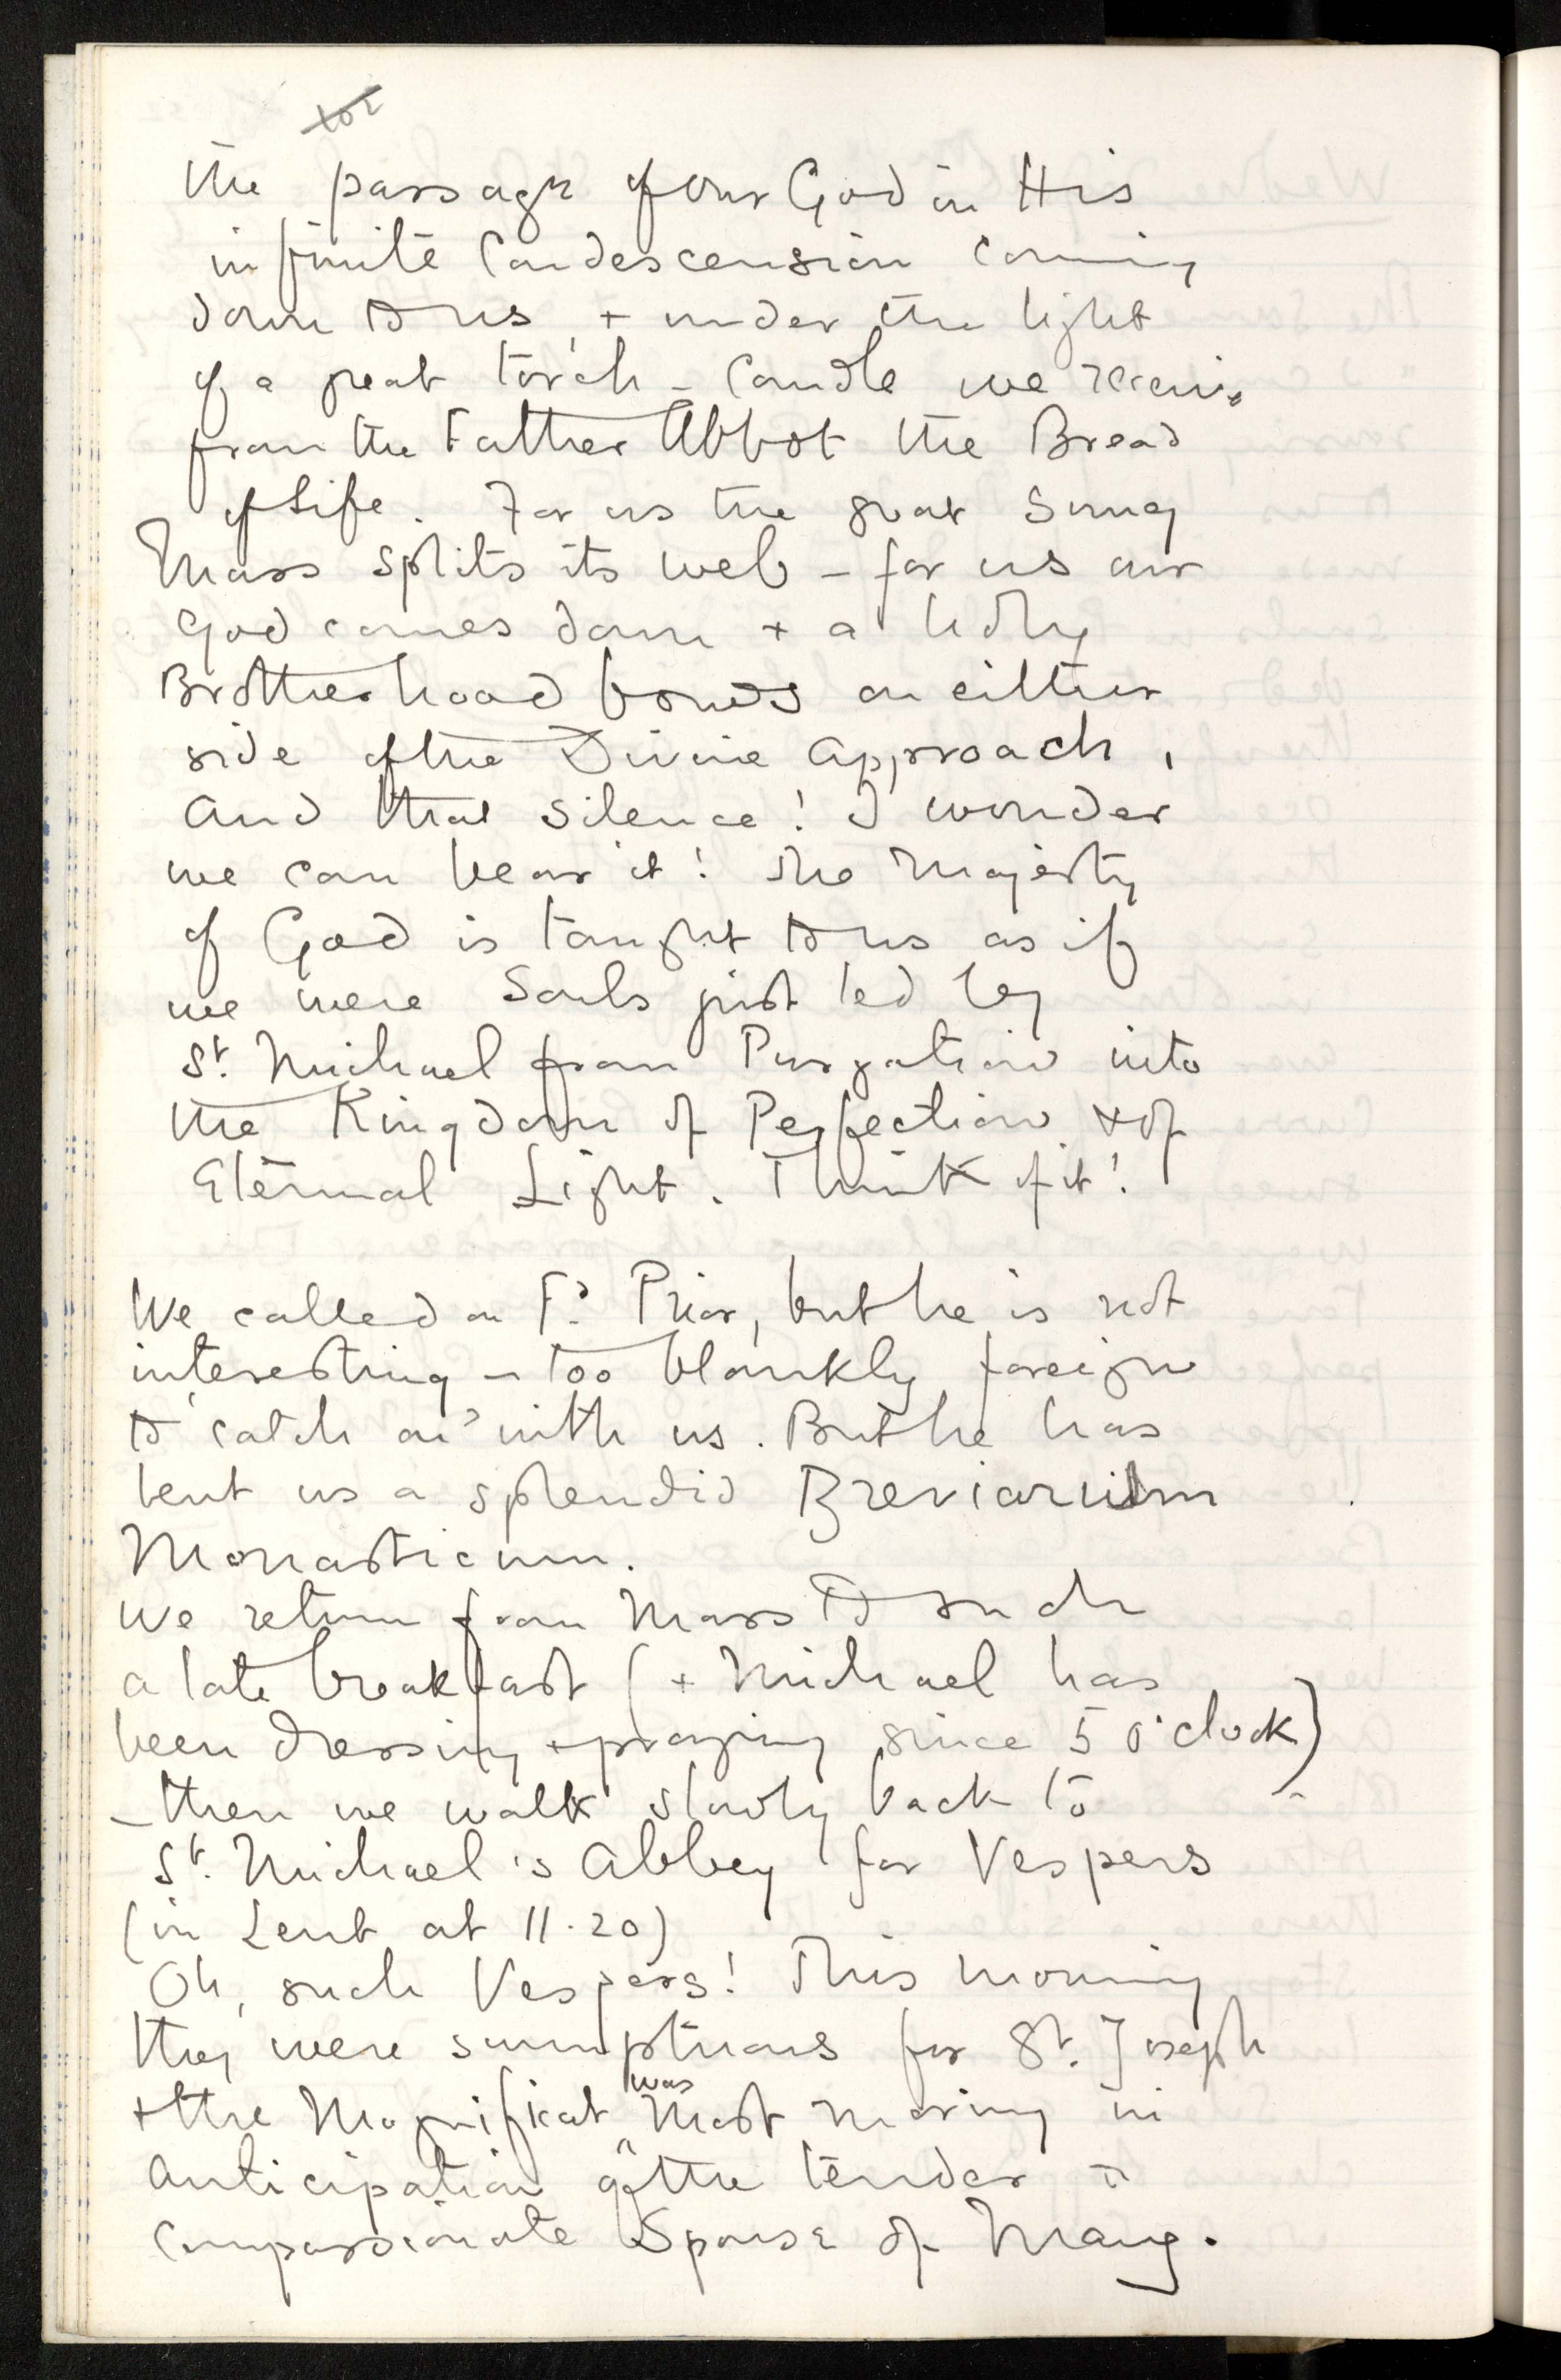 the passage of our God in His
infinite Condescension coming
down to us, + under the light
of a great torch-candle we receive
from the Father Abbot the Bread
of Life. For us the great Sung
Mass splits its web – for us our
God comes down + a holy
Brotherhood bows on either
side of the Divine Approach,
And that silence! I wonder
we can bear it! The Majesty
of God is taught to us as if
we were Souls just led by
St. Michael from Purgation into
the Kingdom of Perfection + of
Eternal Light. Think of it!
We called on Fr. Prior, but he is not
interesting – too blankly foreign
to 'catch on' with us. But he has
lent us a splendid Breviarium
Monasticum.
We return from Mass to such
a late breakfast (+ Michael has
been dressing + praying since 5 o'clock)
– then we walk slowly back to
St. Michael's Abbey for Vespers
(in Lent at 11.20)
Oh, such Vespers! This morning
they were sumptuous for St. Joseph
+ the Magnificat was most moving in
Anticipation of the tender +
Compassionate Spouse of Mary.